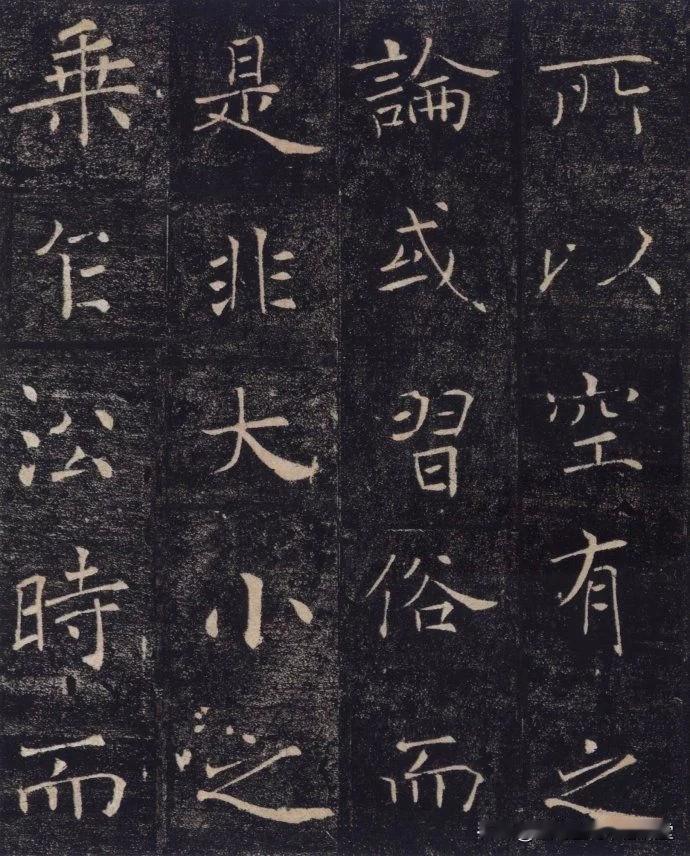 所以空有之
論或習俗而
是非大小之
乗乍沿時而